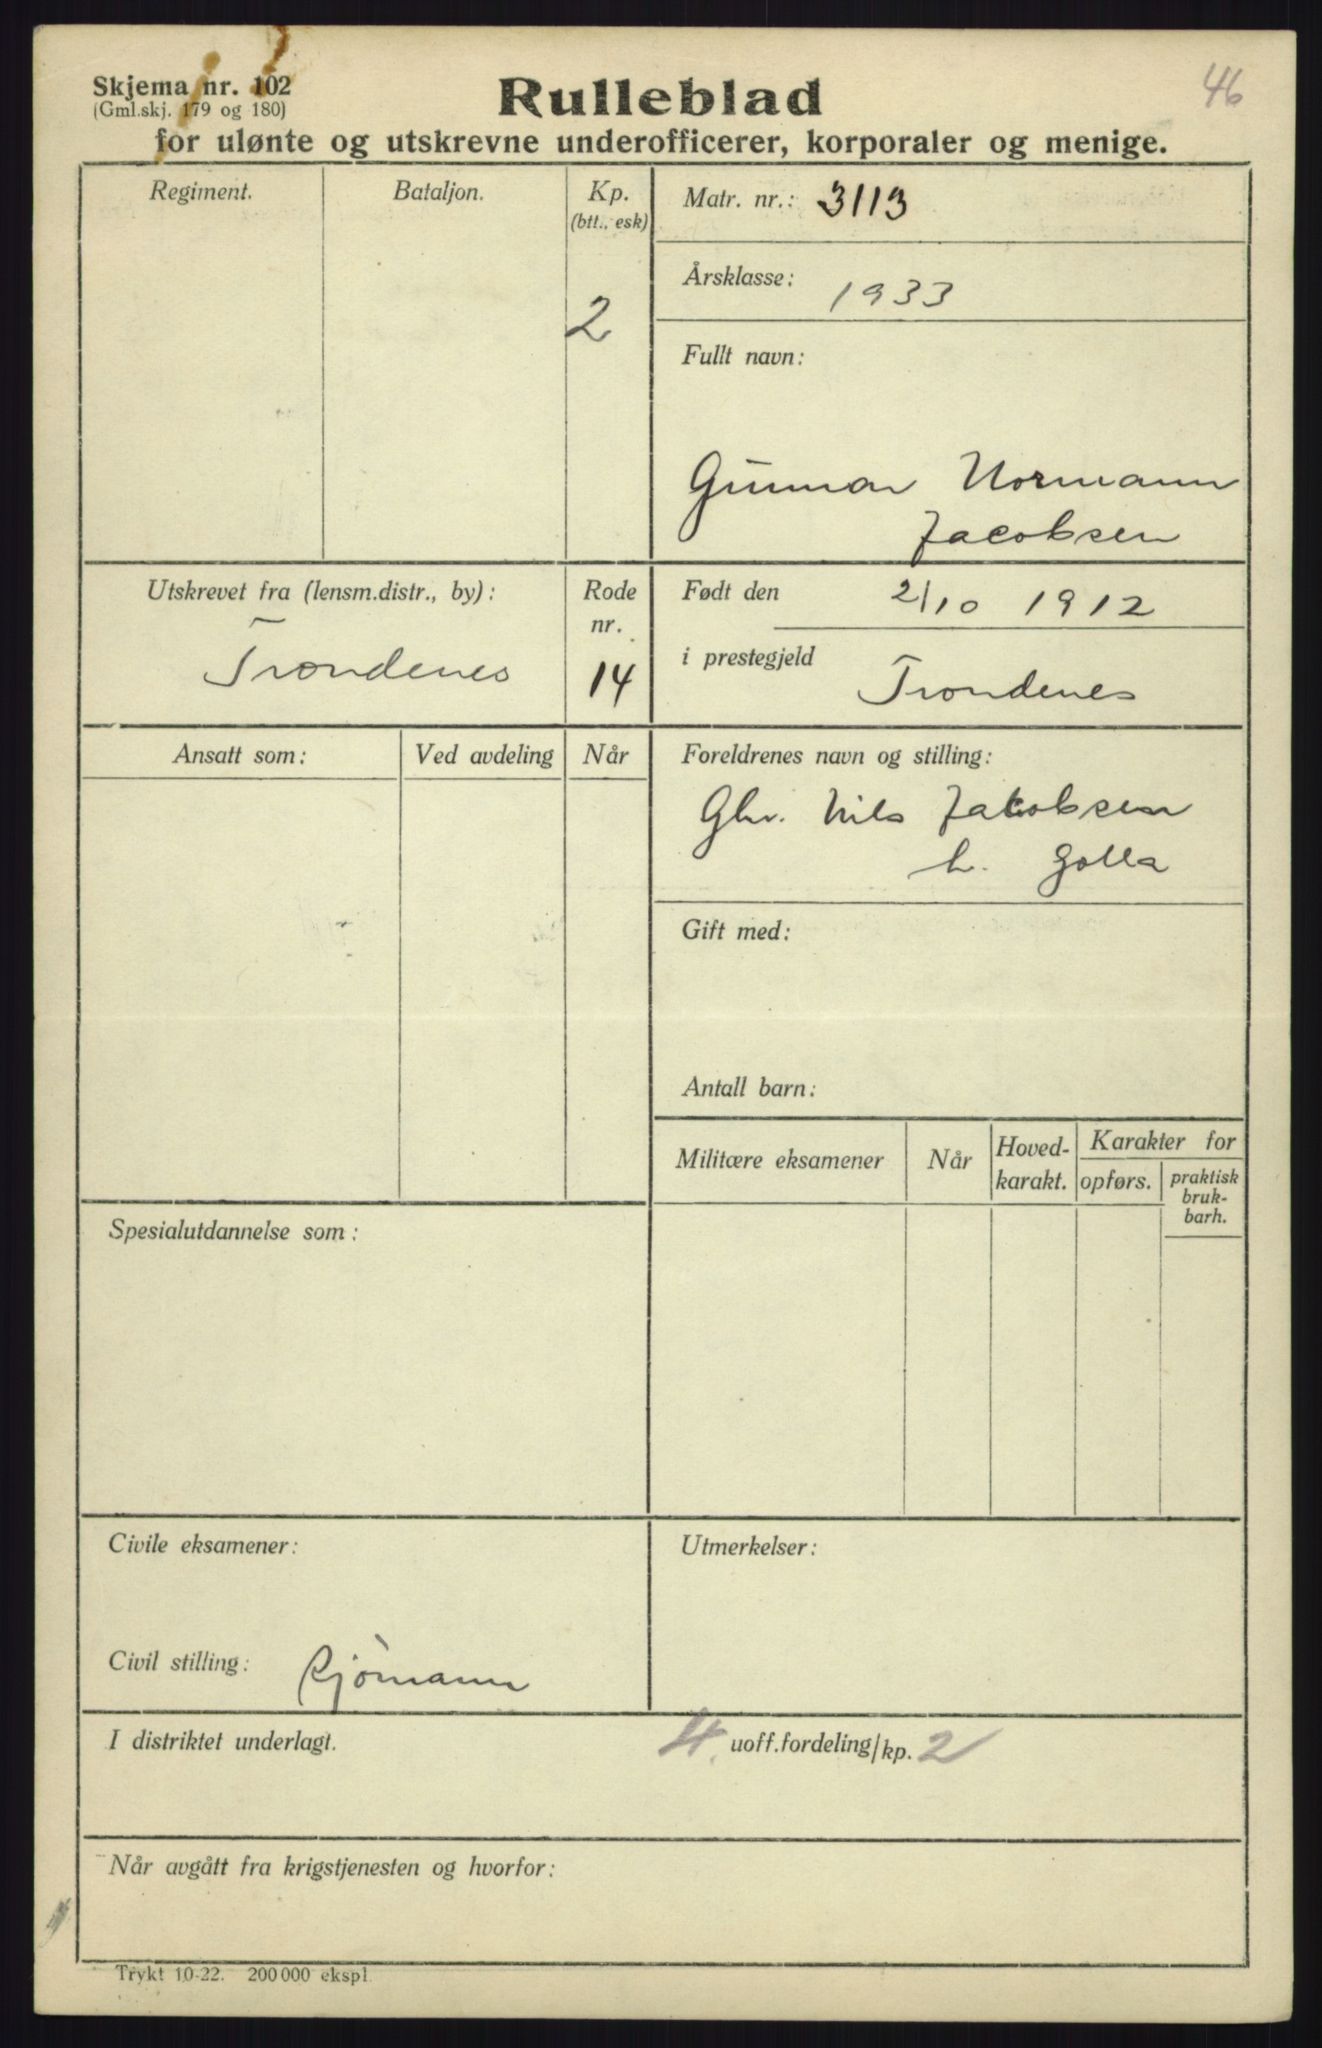 46
Skjema nr. 102
(Gml.skj. 179 og 180)
Rulleblad
for ulønte og utskrevne underofficerer, korporaler og menige.
Regiment.
Bataljon.
Kp.
(btt., esk)
2
Matr. nr.: 3113
Årsklasse: 1933
Fullt navn:
Gunnar Normann
Jacobsen
Utskrevet fra (lensm.distr., by):
Trondenes
Rode
nr.
14
Født den 2/10 1912
i prestegjeld Trondenes
Ansatt som:
Ved avdeling
Når
Foreldrenes navn og stilling:
Gbr. Nils Jakobsen
h. Golla
Gift med:
Antall barn:
Militære eksamener
Når
Hoved-
karakt.
Karakter for
opførs.
praktisk
bruk-
barh.
Spesialutdannelse som:
Civile eksamener:
Civil stilling: Sjømann
Utmerkelser:
I distriktet underlagt.
4. uoff.fordeling/kp. 2
Når avgått fra krigstjenesten og hvorfor:
Trykt 10-22. 200 000 ekspl.